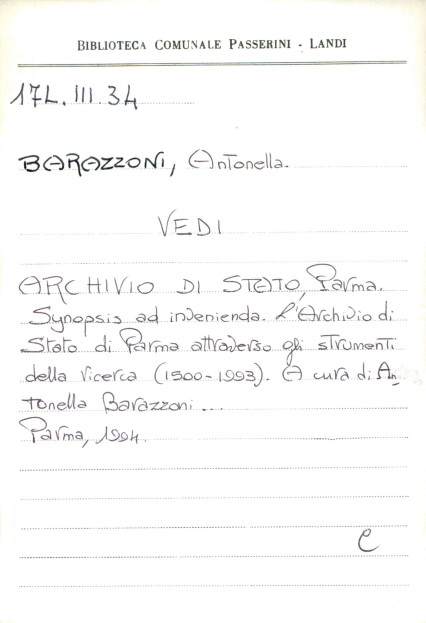 BIBLIOTECA COMUNALE PASSERINI - LANDI
17L.III.34
BARAZZONI, Antonella.
VEDI
ARCHIVIO DI STATO, Parma.
Synopsis ad invenienda. L'Archivio di
Stato di Parma attraverso gli strumenti
della ricerca (1500-1993). A cura di An
tonella Barazzoni...
Parma, 1994.
C